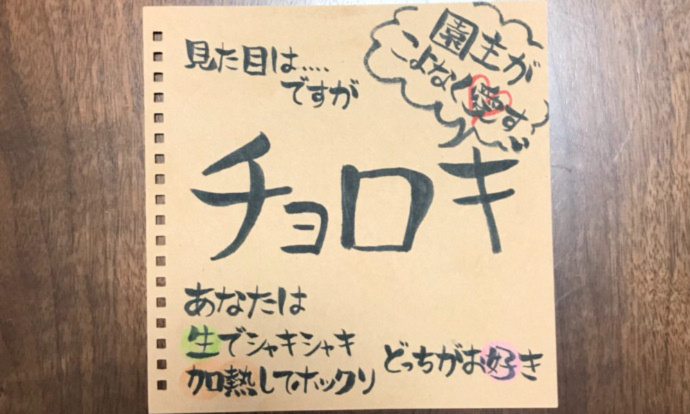 見た目は....
ですが
園主が
こよなく愛す
チョロキ
あなたは
生でシャキシャキ
加熱してホックリ
どっちがお好き